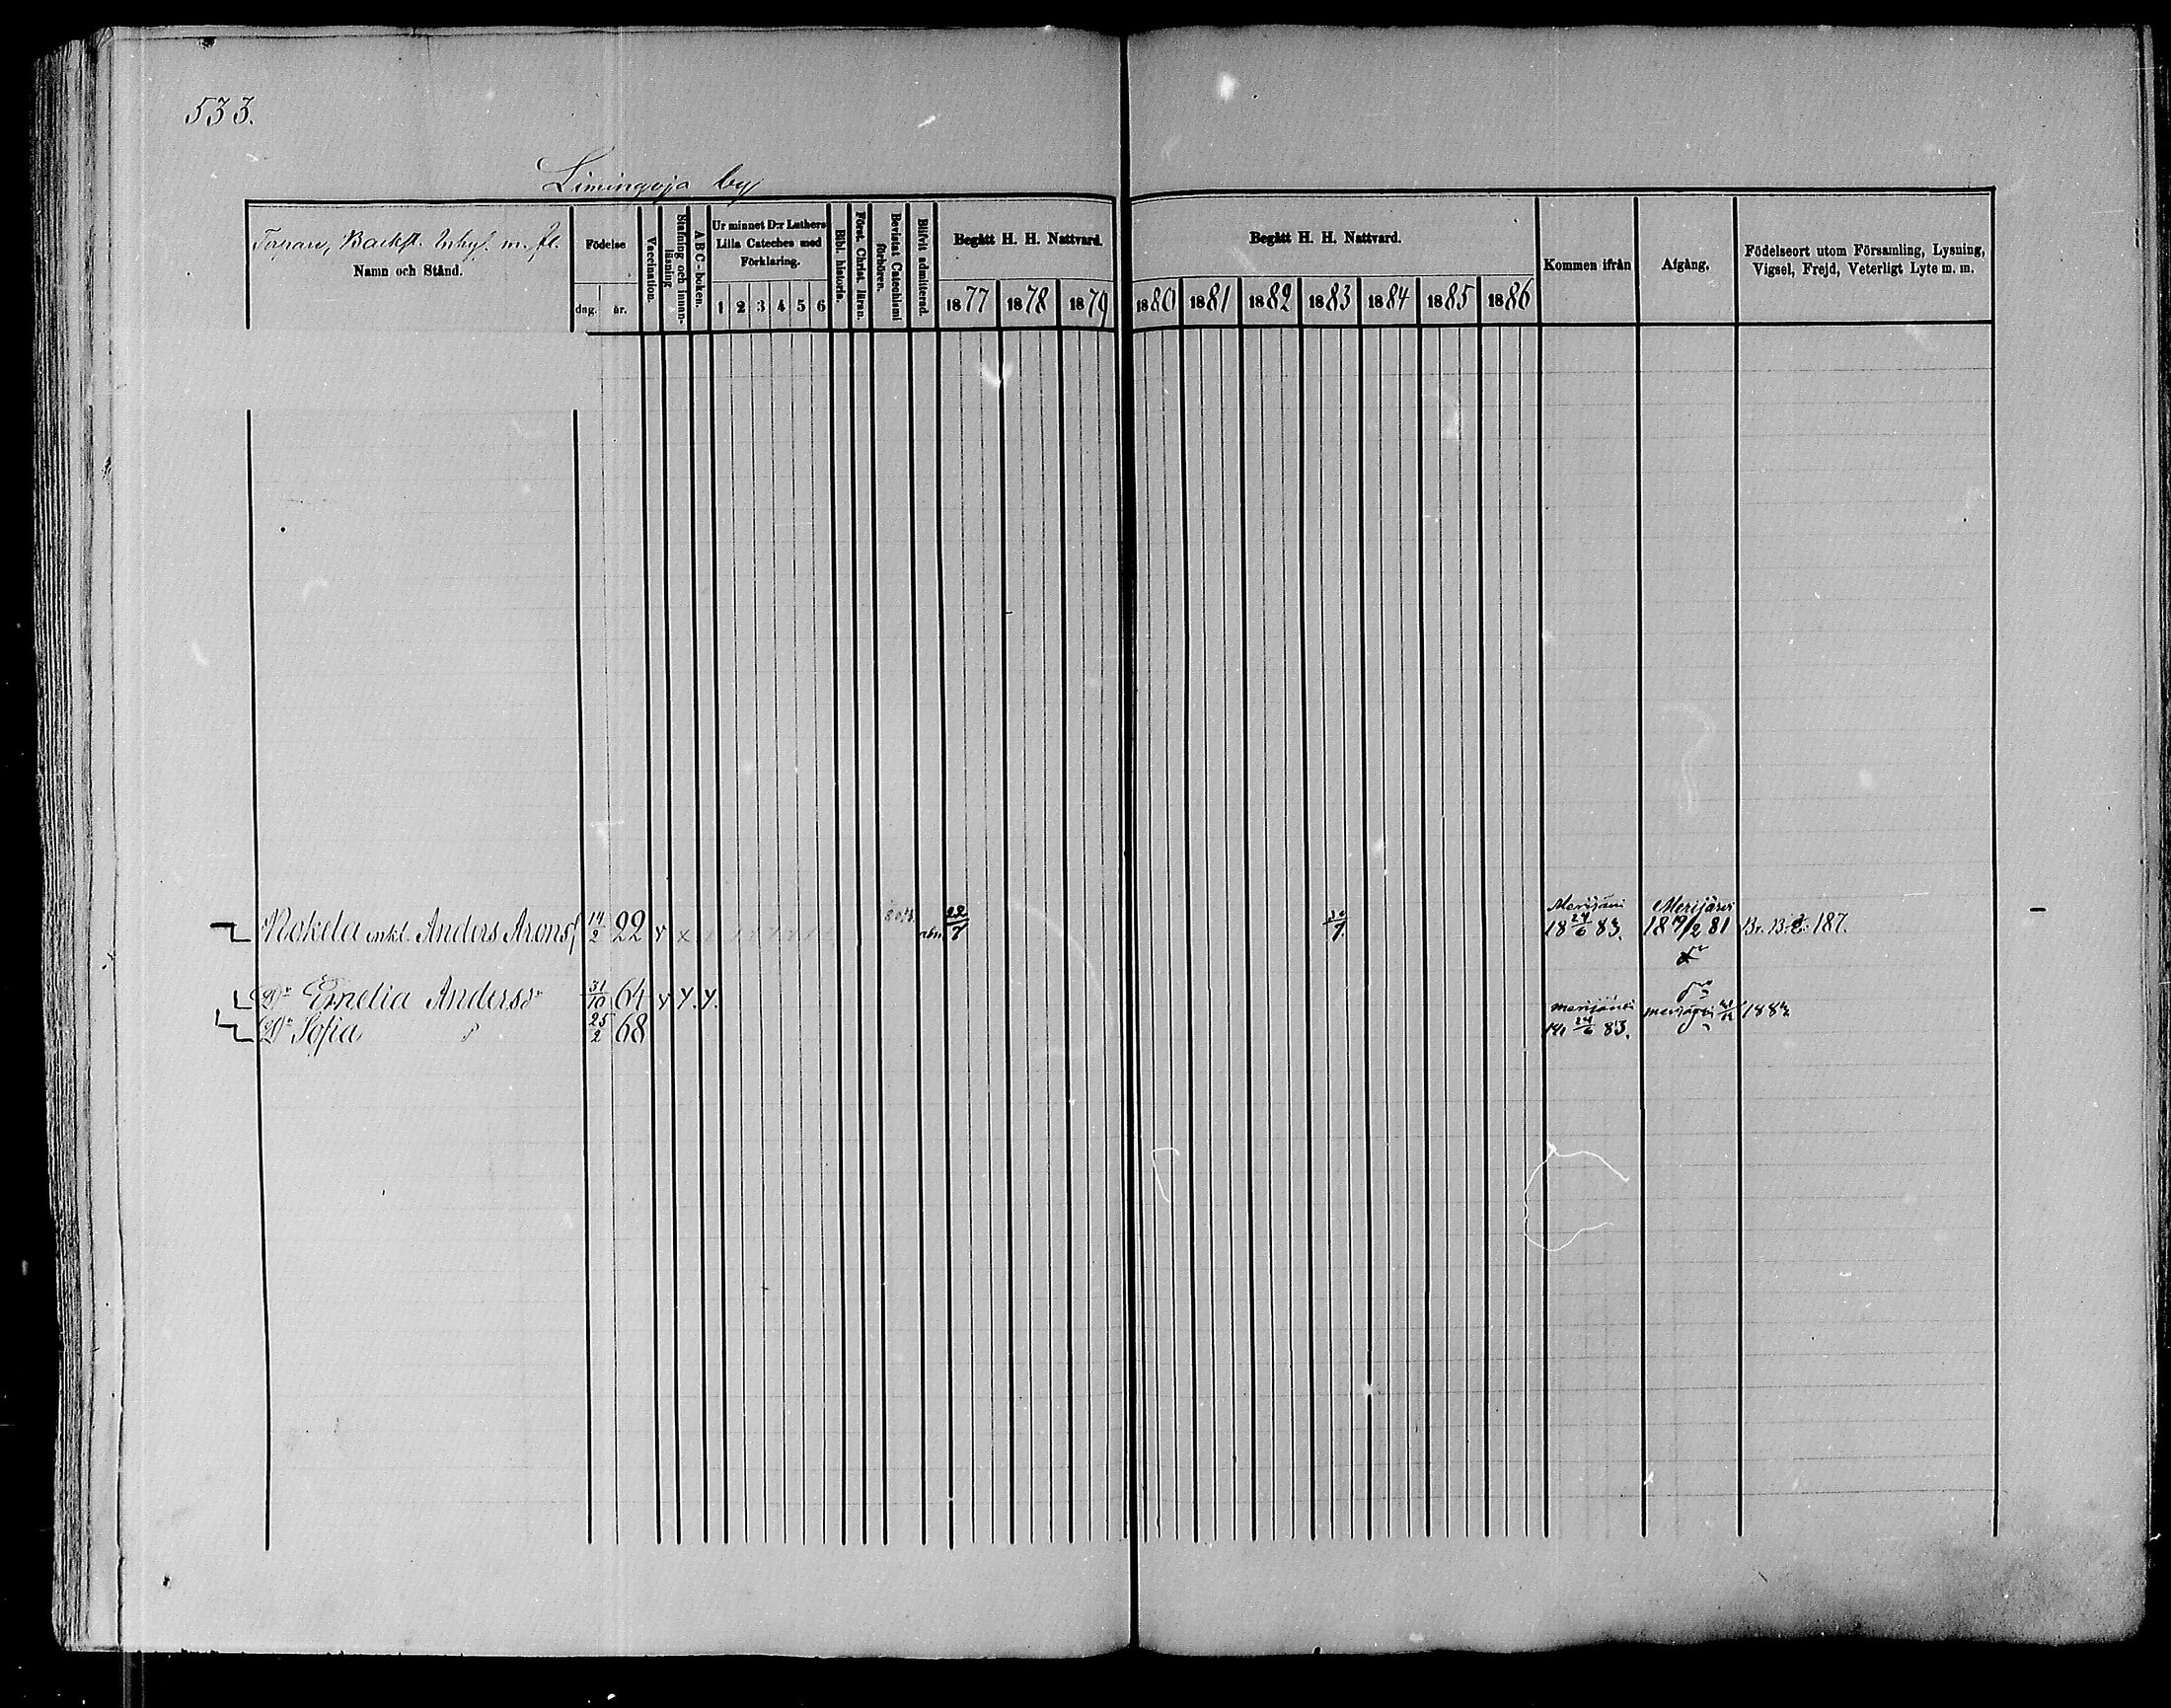 533.
Limingoja by
Torpare, Backst. Inhys. m. fl.
Namn och Stånd.
Födelse
dag. år.
Vaccination.
Stafning och innanläsning
A B C-boken.
Ur minnet D:r Luthers
Lilla Cateches med
Förklaring.
1 2 3 4 5 6
Bibl. historia.
Först. Christ. läran.
Bevistat Catechismi
förhören.
Blifvit admitterad.
Begått H. H. Nattvard.
1877 1878 1879
Begått H. H. Nattvard.
1880 1881 1882 1883 1884 1885 1886
Kommen ifrån
Afgång.
Födelseort utom Församling, Lysning,
Vigsel, Frejd, Veterligt Lyte m. m.
Nokela enkl. Anders Aronsf 14/2 22 22/7 30/7 Merijärvi 18 24/6 83. Merijärvi 18 19/2 81 Br. B. 187.
Dr Emelia Andersdr 31/10 64
Dr Sofia 25/2 68 merijärvi 18 24/6 83. merijärvi